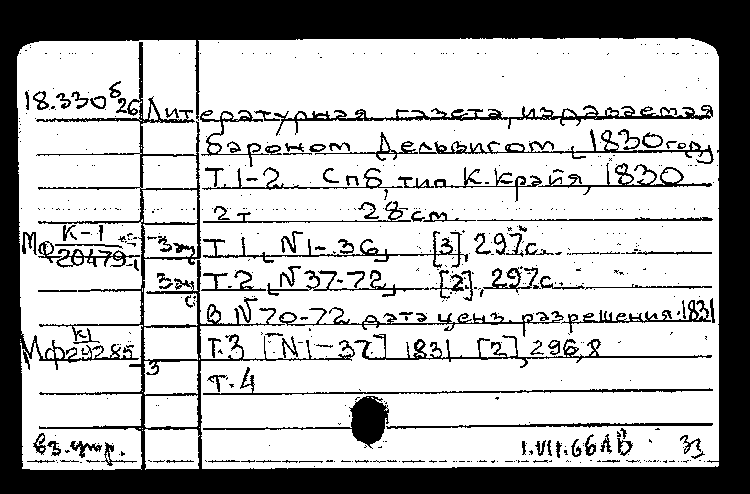 18.330 б/26 Литературная газета, издаваемая
бароном Дельвигом [1830 год].
Т.1-2. Спб, тип К. Крайя, 1830
2 т 28 см.
Мф К-1/20479-1 Т.1 [№1-36] [3], 297с.
Т.2 [№37-72] [2], 297с.
В №70-72 дата ценз. разрешения: 1831
Мф К1/29285 -3 Т.3 [№1-37] 1831 [2], 296,8
Т.4
1.VII.66 АВ